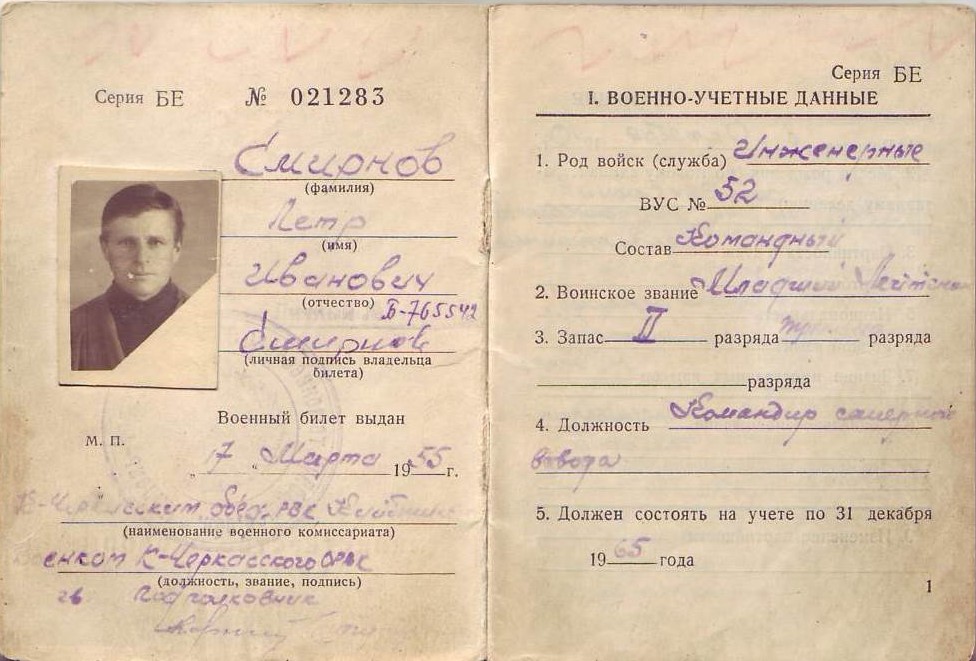 Серия БЕ № 021283
Смирнов
(фамилия)
Петр
(имя)
Иванович
(отчество)
Б-765542
Смирнов
(личная подпись владельца
билета)
Военный билет выдан
М. П.
„ 17 “ Марта 1955 г.
К-Черкасским
(наименование военного комиссариата)
К-Черкасского ОРВК
(должность, звание, подпись)
гв. Подполковник
Серия БЕ
I. ВОЕННО-УЧЕТНЫЕ ДАННЫЕ
1. Род войск (служба) Инженерные
ВУС № 52
Состав Командный
2. Воинское звание Младший Лейтенант
3. Запас II разряда разряда
разряда
4. Должность Командир саперного
взвода
5. Должен состоять на учете по 31 декабря
1965 года
1